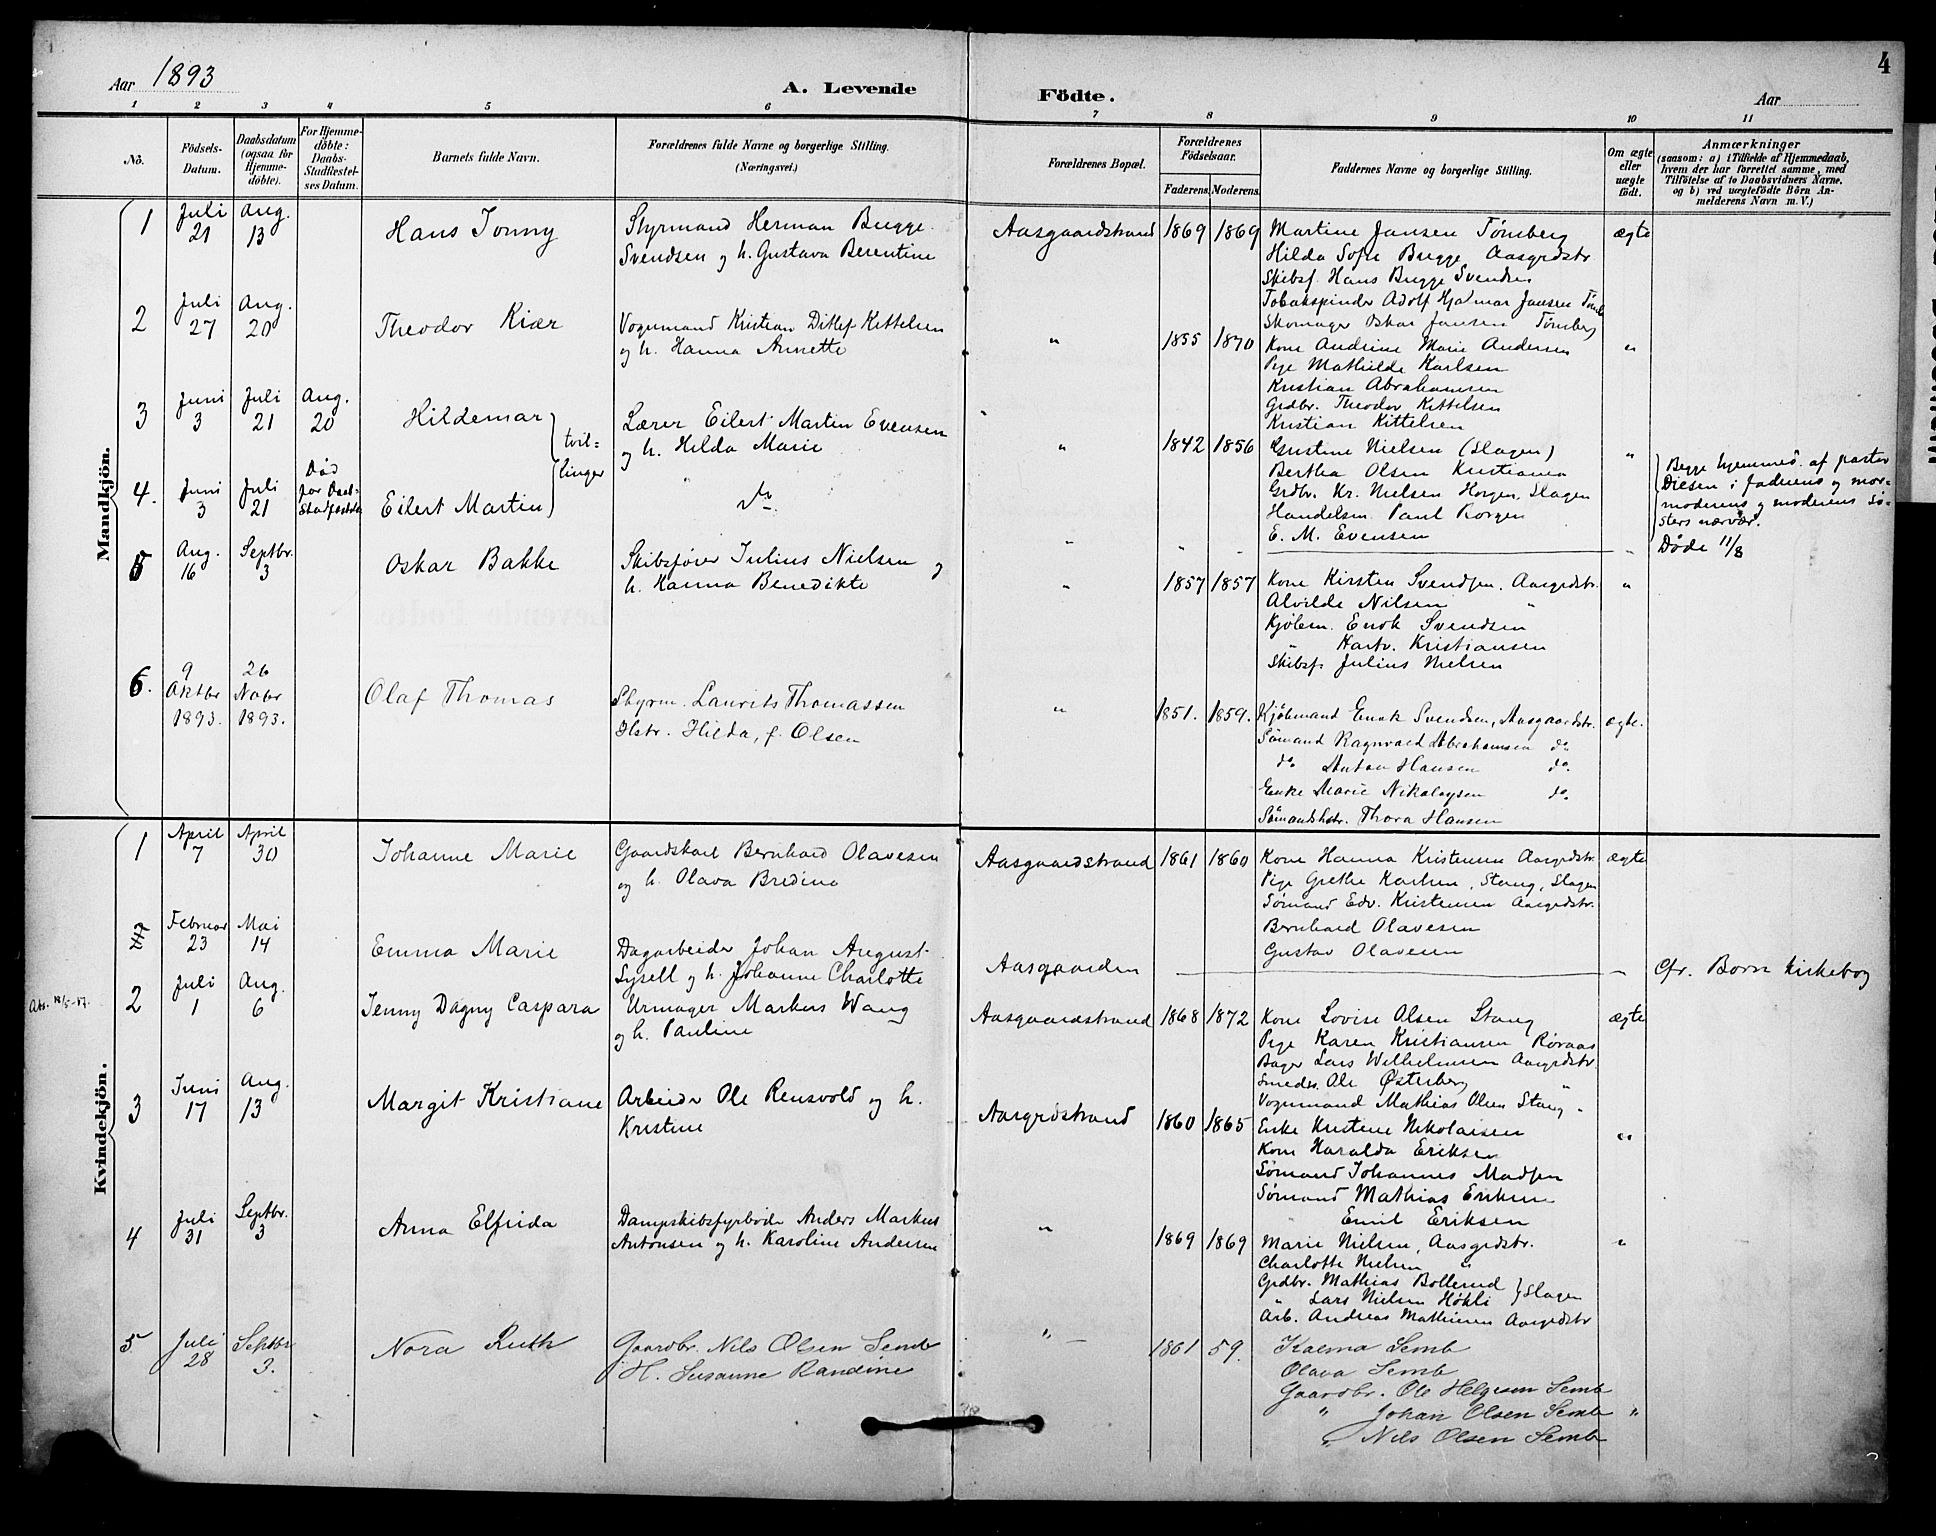 4
Aar 1893
A. Levende Födte.
Aar
1 2 3 4 5 6 7 8 9 10 11
No.
Födsels-Datum.
Daabsdatum (ogsaa for Hjemme-döbte).
For Hjemme-döbte: Daabs-Stadfæstel-ses Datum.
Barnets fulde Navn.
Forældrenes fulde Navne og borgerlige Stilling.
(Næringsvei.)
Forældrenes Bopæl.
Forældrenes Födselsaar.
Faderens. Moderens.
Faddernes Navne og borgerlige Stilling.
Om ægte eller uægte födt.
Anmærkninger
(saasom: a) i Tilfælde af Hjemmedaab,
hvem der har forrettet samme, med
Tilföielse af to Daabsvidners Navne,
og b) ved uægtefödte Börn An-
melderens Navn m. V.)
Mandkjön.
1 Juli 21 Aug. 13 Hans Jonny
Styrmand Herman Bugge
Svendsen og h. Gustava Berentine
Aasgaardstrand 1869 1869
Martine Jansen Tønsberg
Hilda Sofie Bugge Aasgrdstr
Skibsf. Hans Bugge Svendsen
Tobakspinder Adolf Hjalmar Jansen Tønsb
Skomager Oskar Jansen Tønsberg
ægte
2 Juli 27 Aug. 20 Theodor Kiær
Vognmand Kristian Ditlef Kittelsen
og h. Hanna Annette
" 1855 1870
Kone Andrine Marie Andersen
Pige Mathilde Karlsen
Kristian Abrahamsen
Grdbr. Theodor Kittelsen
Kristian Kittelsen
"
3 Juni 3 Juli 21 Aug. 20 Hildemar
tvil=
linger
Lærer Eilert Martin Evensen
og h. Hilda Marie
" 1842 1856
Gustine Nielsen (Slagen)
Bertha Olsen Kristiania
Grdbr. Kr. Nielsen Horgen, Slagen
Handelsm. Paul Rorgen
E. M. Evensen
"
Begge hjemmed. af pastor
Diesen i faderens og mor-
moderens og moderens sø-
sters nærvær.
4. Juni 3 Juli 21 Død før Daab= Stadfæstelse Eilert Martin
do
" " " "
Døde 11/8
5 Aug. 16 Septbr. 3 Oskar Bakke
Skibsfører Julius Nielsen og
h. Hanna Benedikte
" 1857 1857
Kone Kirsten Svendsen. Aasgrdstr.
Alvilde Nilsen "
Kjøbm. Enok Svendsen
" Hartv. Kristiansen
Skibsf. Julius Nielsen
"
6. 9 Oktbr 1893. 26 Novbr 1893. Olaf Thomas
Styrm. Laurits Thomassen
Hstr. Hilda, f. Olsen
" 1851. 1859.
Kjøbmand Enok Svendsen, Aasgaardstr.
Sømand Ragnvald Abrahamsen do
do Anton Hansen do.
Enke Marie Nikolaysen do.
Sømandshstr. Thora Hansen
ægte.
Kvindekjön.
1 April 7 April 30 Johanne Marie
Gaardskarl Bernhard Olavesen
og h. Olava Bredine
Aasgaardstrand 1861 1860
Kone Hanna Kristensen Aasgrdstr.
Pige Grethe Karlsen, Stang, Slagen
Sømand Edv. Kristensen Aasgrdstr.
Bernhard Olavesen
Gustav Olavesen
ægte
Februar 23 Mai 14 Emma Marie
Dagarbeider Johan August
Lysell og h. Johanne Charlotte
Aasgaarden
Cfr. Borre kirkebog
2 Juli 1 Aug. 6 Jenny Dagny Caspara
Urmager Markus Wang
og h. Pauline
Aasgaardstrand 1868 1872
Kone Lovise Olsen Stang
Pige Karen Kristiansen Røraas
Bager Lars Wilhelmsen Aasgrdstr.
Smeds. Ole Østerberg "
Vognmand Mathias Olsen Stang "
ægte
3 Juni 17 Aug. 13 Margit Kristiane
Arbeider Ole Rensvold og h.
Kristine
Aasgrdstrand 1860 1865
Enke Kristine Nikolaisen
Kone Haralda Eriksen
Sømand Johannes Madsen
Sømand Mathias Eriksen
" Emil Eriksen
"
4 Juli 31 Septbr. 3 Anna Elfrida
Dampskibsfyrbøder Anders Markus
Antonsen og h. Karoline Andersen
" 1869 1869
Marie Nielsen, Aasgrdstr.
Charlotte Nielsen "
Grdbr. Mathias Bollerud
" Lars Nielsen Høkli } Slagen
Arb. Andreas Mathisen Aasgrdstr
"
5 Juli 28 Septbr 3. Nora Ruth
Gaardbr. Nils Olsen Semb
H. Susanne Randine
" 1861 59.
Kalma Semb
Olava Semb
Gaardbr. Ole Helgesen Semb
" Johan Olsen Semb
" Nils Olsen Semb
"